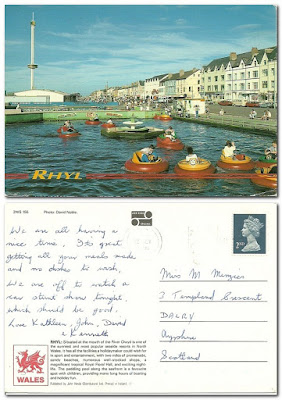 RHYL
We are all having a
nice time. Its great
getting all your meals made
and no dishes to wash.
We are off to watch a
car stunt show tonight,
which should be good.
Love Kathleen, John, David
& Kenneth
Miss M Menzies
3 Templand Crescent
DALRY
Ayrshire
Scotland
RHYL: Situated at the mouth of the River Clwyd is one
of the seaside resorts in North
Wales. It has all the facilities a holidaymaker could wish for
in sport and entertainment, with two miles of promenade,
sandy beaches, numerous well-stocked shops, a
magnificent tropical Royal Floral Hall, and exciting night
life. The paddling pool along the seafront is a favourite
spot with children, providing many long hours of boating
and holiday fun.
WALES